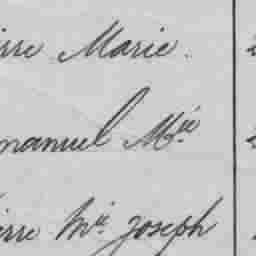 ierre Marie.
manuel Mie
ierre Mie Joseph